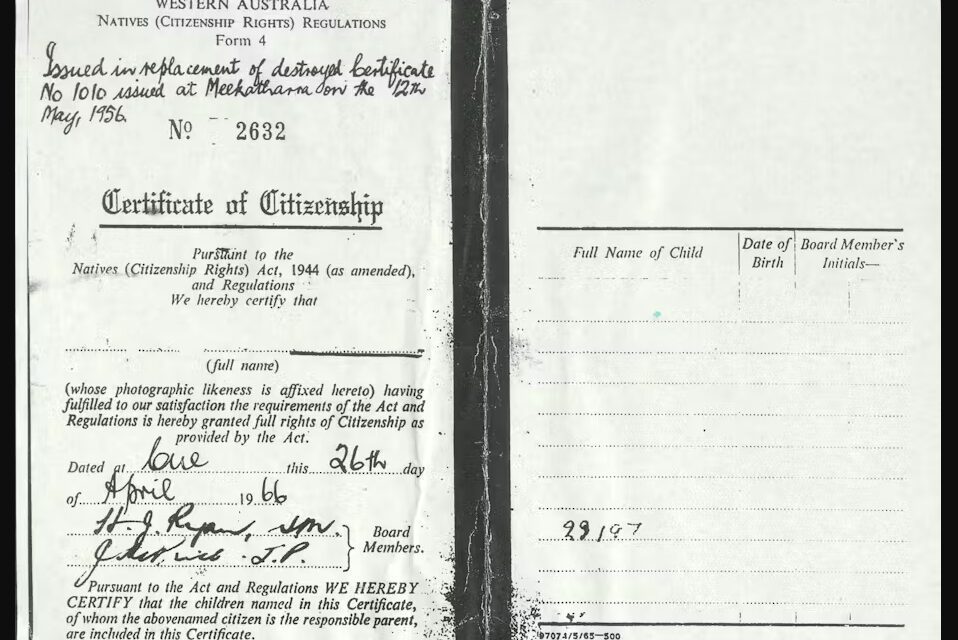 WESTERN AUSTRALIA
NATIVES (CITIZENSHIP RIGHTS) REGULATIONS
Form 4
Issued in replacement of destroyed Certificate
No 1010 issued at Meekatharra on the 12th
May, 1956.
Nº 2632
Certificate of Citizenship
Pursuant to the
Natives (Citizenship Rights) Act, 1944 (as amended),
and Regulations
We hereby certify that
(full name)
(whose photographic likeness is affixed hereto) having
fulfilled to our satisfaction the requirements of the Act and
Regulations is hereby granted full rights of Citizenship as
provided by the Act.
Dated at Cue this 26th day
of April 1966
H. J. Ryan, SM.
J. J.P.
Board
Members.
Pursuant to the Act and Regulations WE HEREBY
CERTIFY that the children named in this Certificate,
of whom the abovenamed citizen is the responsible parent,
are included in this Certificate.
Full Name of Child
Date of
Birth
Board Member's
Initials—
97074/5/65—500